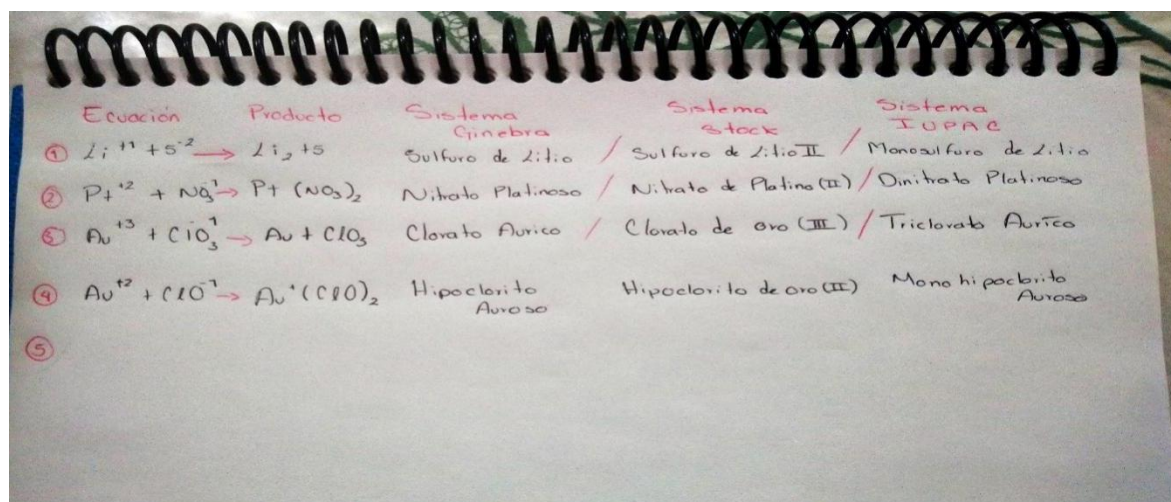 Ecuación Producto Sistema Ginebra Sistema Stock Sistema IUPAC
① Li⁺¹ + S⁻² → Li₂ + S Sulfuro de Litio / Sulfuro de Litio II / Monosulfuro de Litio
② Pt⁺² + NO₃⁻¹ → Pt (NO₃)₂ Nitrato Platinoso / Nitrato de Platino (II) / Dinitrato Platinoso
③ Au⁺³ + ClO₃⁻¹ → Au + ClO₃ Clorato Aurico / Clorato de oro (III) / Triclorato Aurico
④ Au⁺² + ClO⁻¹ → Au⁺(ClO)₂ Hipoclorito Auroso Hipoclorito de oro (II) Mono hipoclorito Auroso
⑤